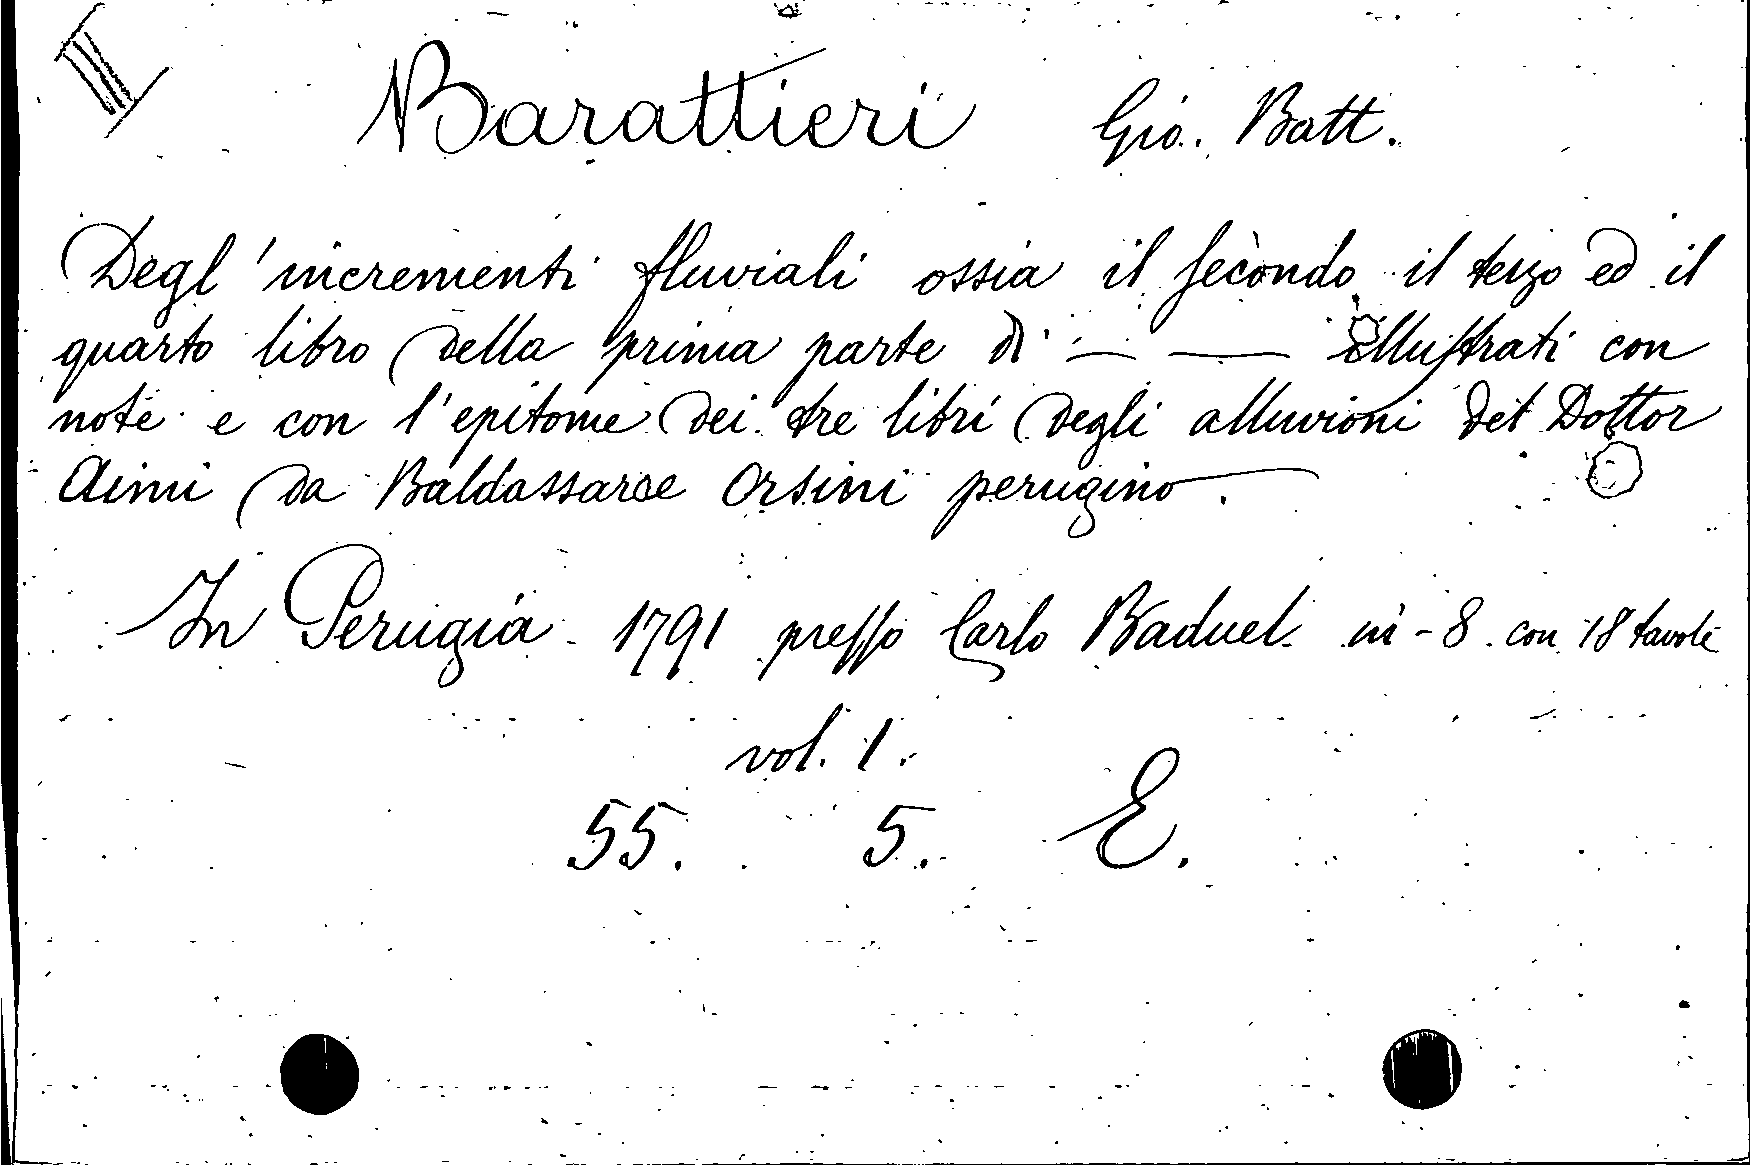 III
Barattieri Gio. Batt.
Degl'incrementi fluviali ossia il secondo il terzo ed il
quarto libro della prima parte di — — illustrati con
note e con l'epitome dei tre libri degli alluvioni del Dottor
Aimi da Baldassarre Orsini perugino.
In Perugia 1791 presso Carlo Baduel in-8 con 18 tavole
vol. 1.
55. 5. E.